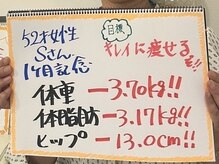 52才女性
Sさん
1ヶ月記信
目標
キレイに痩せるぞ!!
体重 -3.70kg!!
体脂肪 -3.17kg!!
ヒップ -13.0cm!!